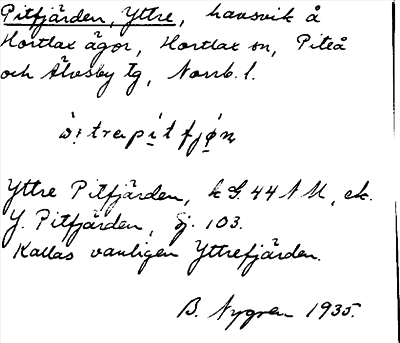 Pitfjärden, Yttre, havsvik å
Hortlax ägor, Hortlax sn, Piteå
och Älvsby tg, Norrb. l.
ò̤trapìtfjǿṇ
Yttre Pitfjärden, k G. 44 N M, ek.
Y. Pitfjärden, sj. 103.
Kallas vanligen Yttrefjärden.
B. Nygren 1935.